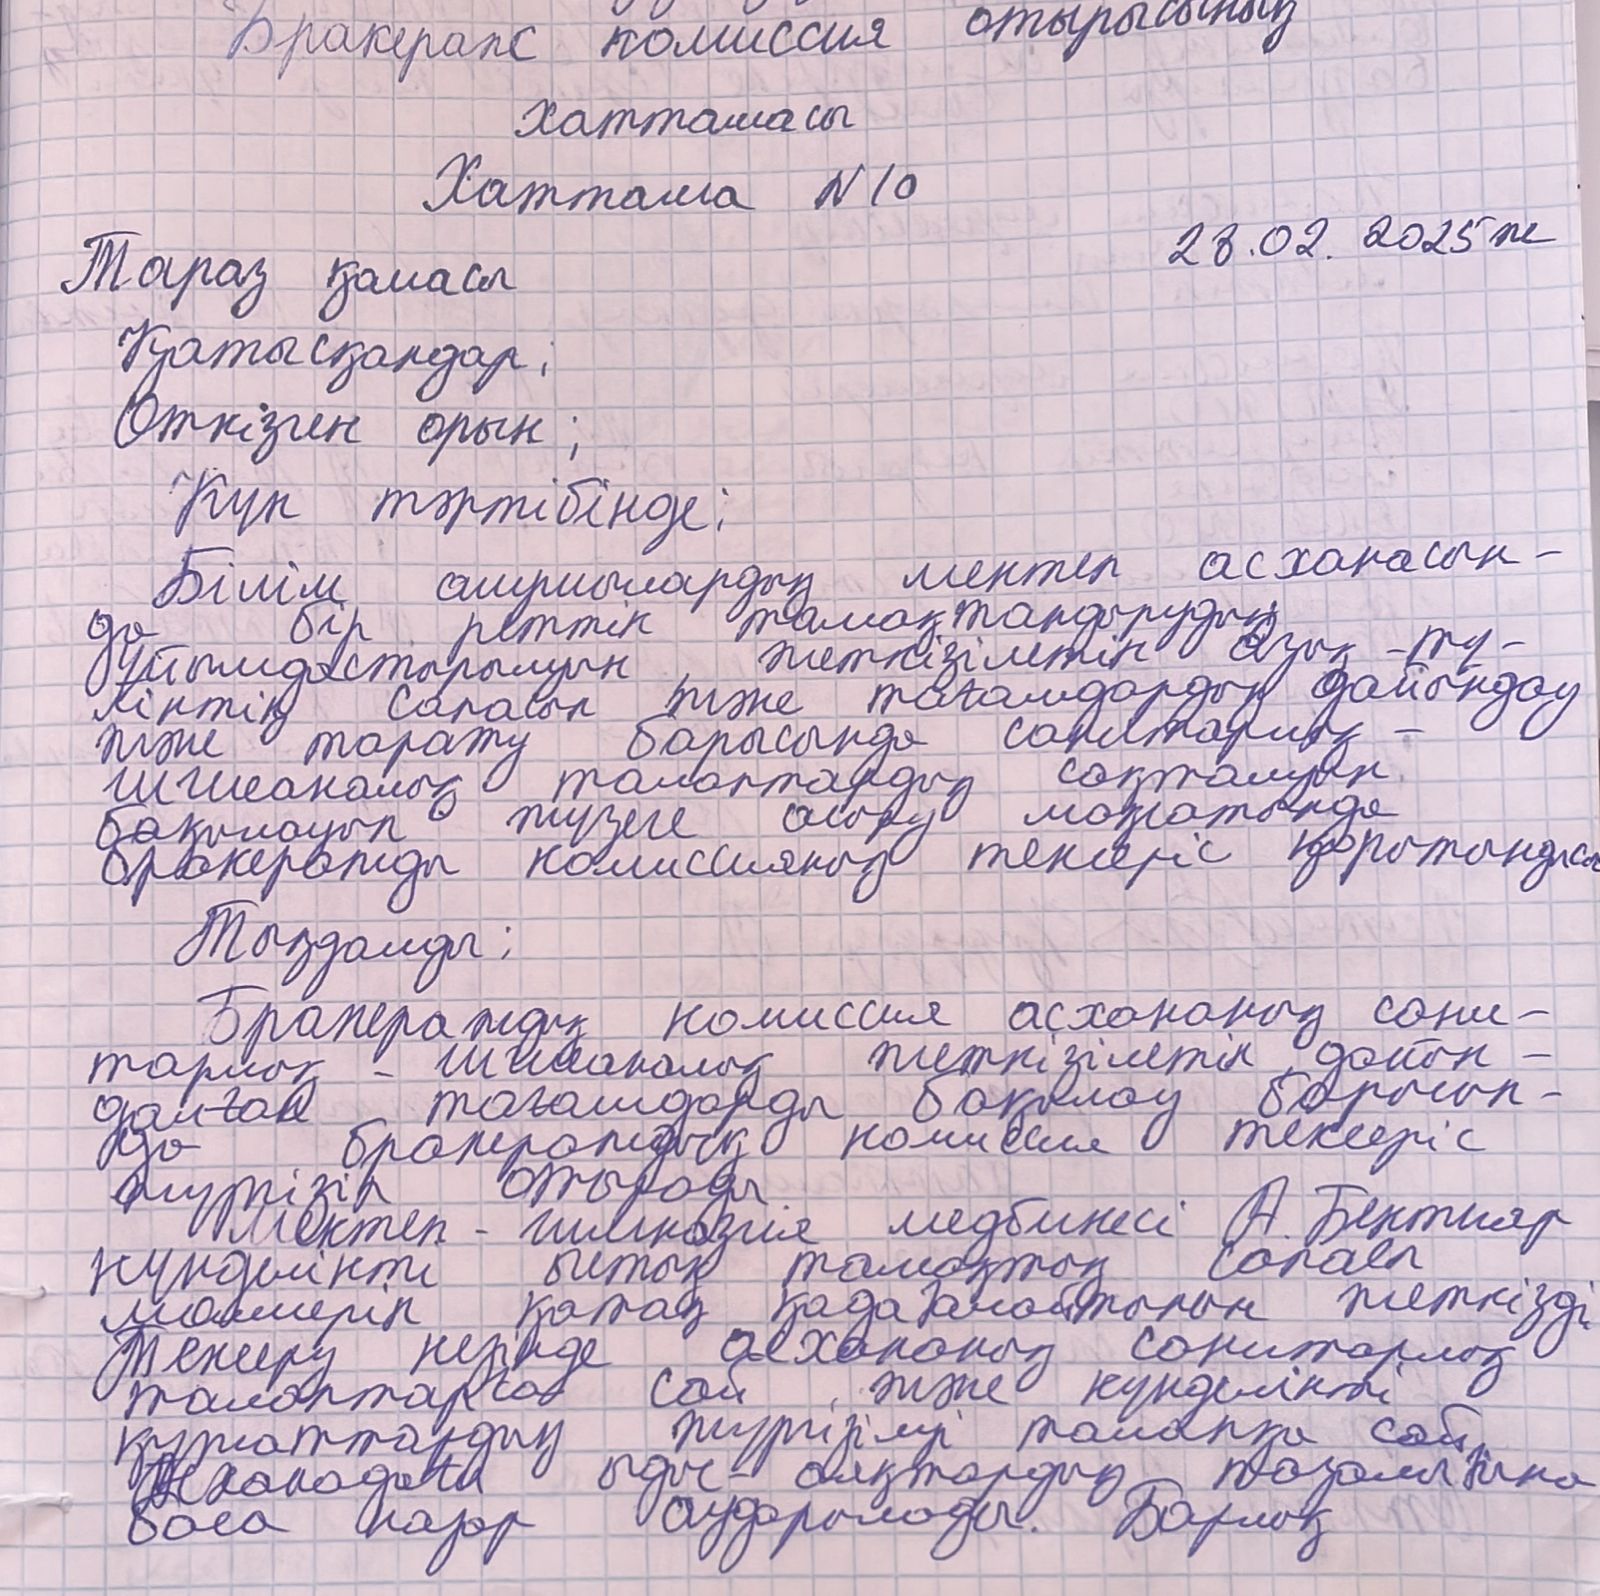 Бракераж комиссия отырысының
хаттамасы
Хаттама N 10
28.02.2025 ж
Тараз қаласы
Қатысқандар;
Өткізген орын;
Күн тәртібінде;
Білім алушылардың мектеп асханасын-
да бір реттік тамақтандырудың
ұйымдастырылуын, жеткізілетін азық-тү-
ліктің сапасын және тағамдардың дайындау
және тарату барысында санитарлық-
гигиеналық талаптардың сақталуын
бақылауын жүзеге асыру мақсатында
бракеражды комиссияның тексеріс қорытындысы
Тыңдалды;
Бракераждық комиссия асхананың сани-
тарлық - гигиеналық жеткізілетін дайын-
далған тағамдарды бақылау барысын-
да бракераждық комиссия тексеріс
жүргізіп отырады
Мектеп - гимназия медбикесі А. Бектияр
күнделікті ыстық тамақтың сапасы
мөлшерін қатаң қадағалайтынын жеткізді
Тексеру кезінде асхананың санитарлық
талаптарға сай және күнделікті
құжаттардың жүргізілуі талапқа сай.
Асханадағы ыдыс-аяқтардың тазалығына
баса назар аударылады. Барлық